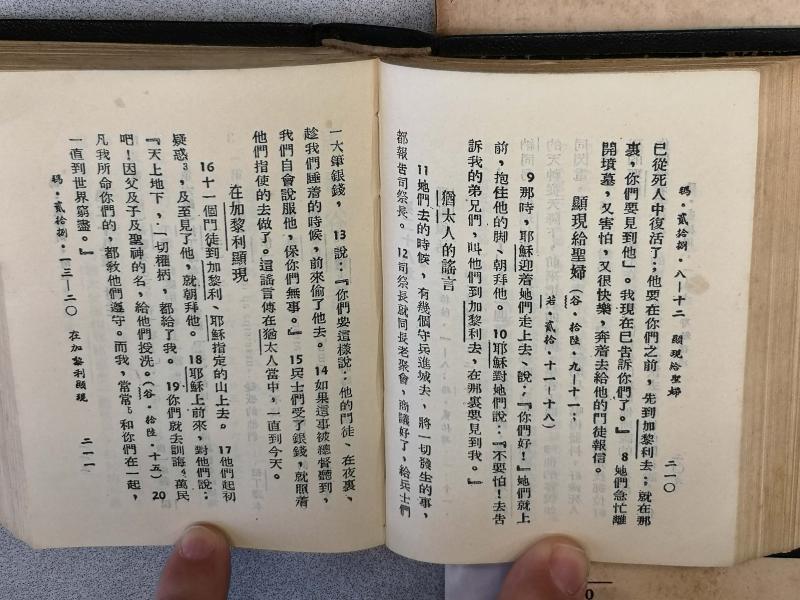 瑪·貳拾捌·八—十二　顯現給聖婦　二一〇
已從死人中復活了；他要在你們之前，先到加黎利去；就在那
裏，你們要見到他」。我現在已告訴你們了。』 8 她們急忙離
開墳墓，又害怕，又很快樂，奔着去給他的門徒報信。
顯現給聖婦（谷·拾陸·九—十一；
若·貳拾·十一—十八）
9 那時，耶穌迎着她們走上去、說：『你們好！』她們就上
前，抱住他的脚、朝拜他。 10 耶穌對她們說：『不要怕！去告
訴我的弟兄們，叫他們到加黎利去，在那裏要見到我。』
猶太人的謠言
11 她們去的時候，有幾個守兵進城去，將一切發生的事，
都報告司祭長。 12 司祭長就同長老聚會，商議好了，給兵士們
一大筆銀錢， 13 說：『你們要這樣說：他的門徒、在夜裏，
趁我們睡着的時候，前來偷了他去。 14 如果這事被總督聽到，
我們自會說服他，保你們無事。』 15 兵士們受了銀錢，就照着
他們指使的去做了。這謠言傳在猶太人當中，一直到今天。
在加黎利顯現
16 十一個門徒到加黎利、耶穌指定的山上去。 17 他們起初
疑惑3，及至見了他，就朝拜他。 18 耶穌上前來，對他們說：
『天上地下，一切種柄，都給了我。 19 你們就去訓誨4萬民
吧！因父及子及聖神的名，給他們授洗。（谷·拾陸·十五） 20
凡我所命你們的，都敎他們遵守。而我，常常5和你們在一起，
一直到世界窮盡。』
瑪·貳拾捌·一三—二〇　在加黎利顯現　二一一